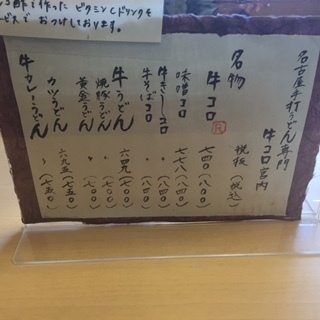 酢で作ったビタミンCドリンクを
ビスでおつけしております。
名古屋手打うどん専門
牛コロ宮内
名物 税抜(税込)
牛コロ 七四〇(八〇〇)
味噌コロ 七七八(八四〇)
牛きしコロ 〃(八四〇)
牛そばコロ 〃(八四〇)
牛うどん 六四九(七〇〇)
焼豚うどん 〃(七〇〇)
黄金うどん 〃(七〇〇)
カツうどん
牛カレーうどん 六九五(七五〇)